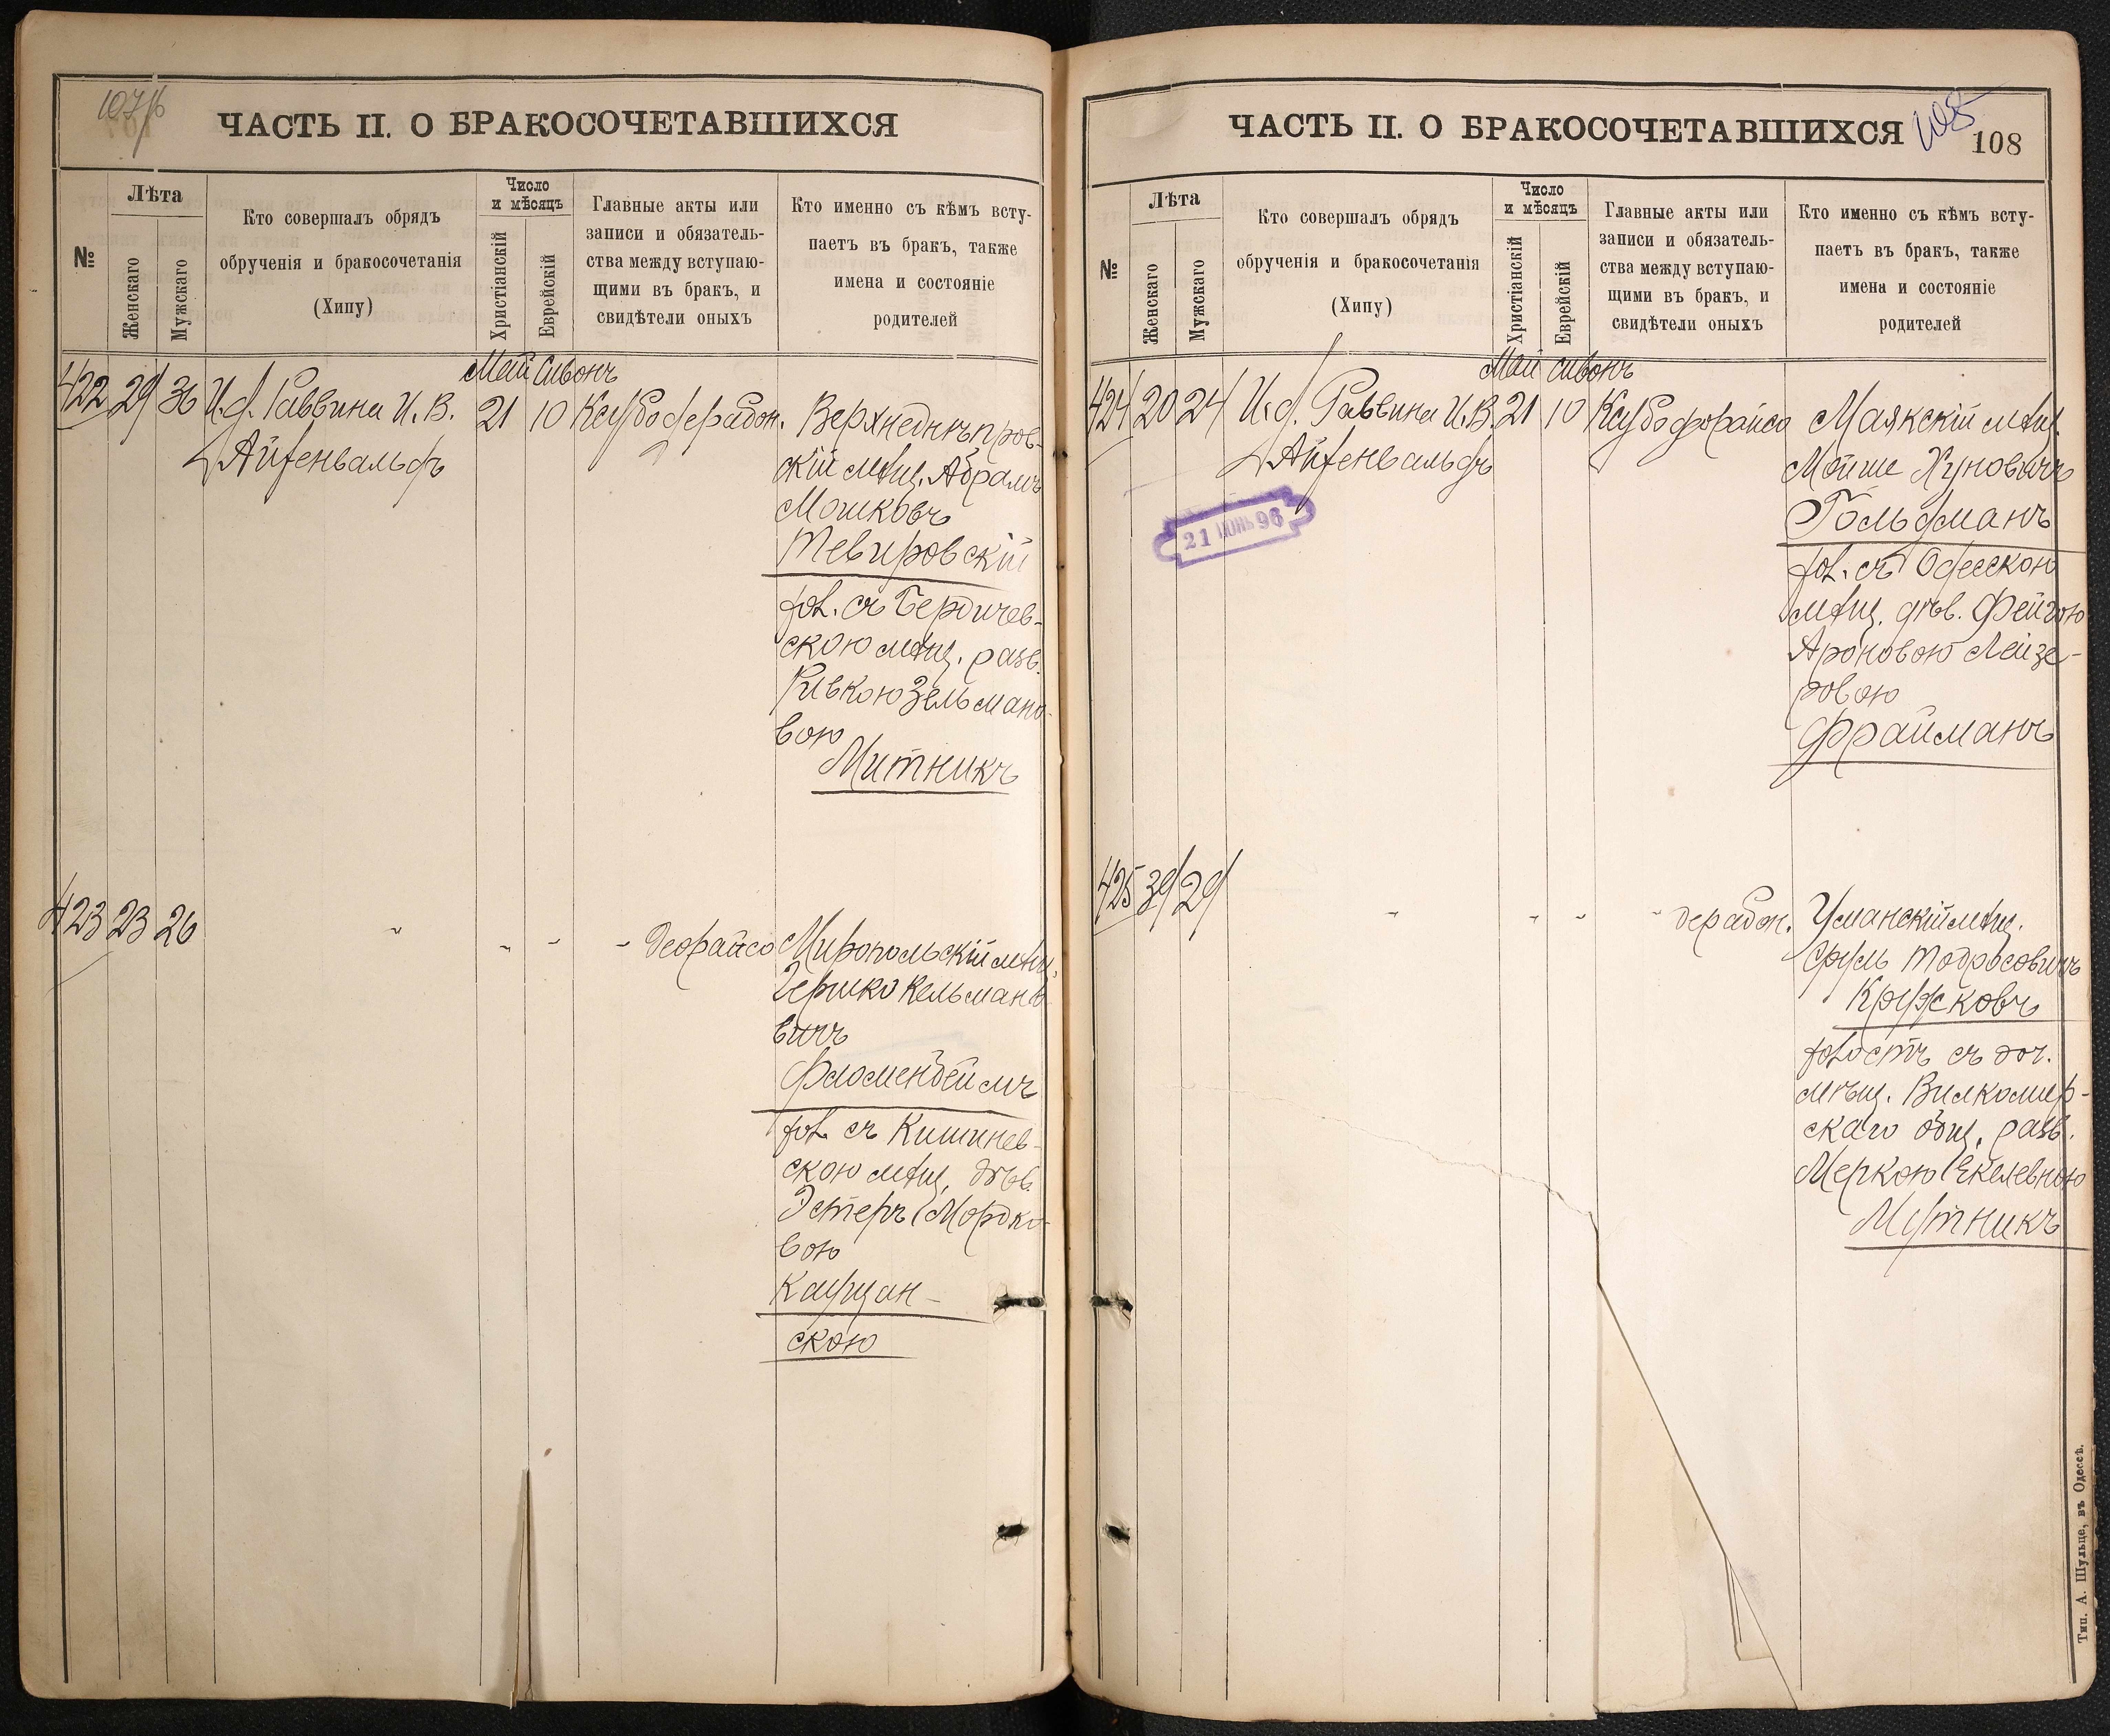 107/б
ЧАСТЬ II. О БРАКОСОЧЕТАВШИХСЯ
№
Лѣта
Женскаго
Мужскаго
Кто совершалъ обрядъ
обрученія и бракосочетанія
(Хипу)
Число
и мѣсяцъ
Христіанскій
Еврейскій
Главные акты или
записи и обязатель-
ства между вступаю-
щими въ бракъ, и
свидѣтели оныхъ
Кто именно съ кѣмъ всту-
паетъ въ бракъ, также
имена и состояніе
родителей
Май Сивонъ
422 29 36 И. д. Раввина И. В. 21 10 Верхнеднѣпров-
Айзенвальдъ
скій мѣщ. Абрамъ
Мошковъ
Тевировскій
хол. съ Бердичев-
скою мѣщ. разв.
Ривкою Зельмано-
вою
Митникъ
423 23 26 " - - - деорайсо Миропольскій мѣщ.
Гершко Кельмано-
вичъ
Фломенбеймъ
хол. съ Кишинев-
скою мѣщ. дѣв.
Эстеръ Мордко-
вою
Каушан-
скою
ЧАСТЬ II. О БРАКОСОЧЕТАВШИХСЯ
108
108
№
Лѣта
Женскаго
Мужскаго
Кто совершалъ обрядъ
обрученія и бракосочетанія
(Хипу)
Число
и мѣсяцъ
Христіанскій
Еврейскій
Главные акты или
записи и обязатель-
ства между вступаю-
щими въ бракъ, и
свидѣтели оныхъ
Кто именно съ кѣмъ всту-
паетъ въ бракъ, также
имена и состояніе
родителей
Май Сивонъ
424 20 24 И. д. Раввина И. В. 21 10 Маякскій мѣщ.
Айзенвальдъ
Мойше Хуновичъ
21 ІЮНЬ 96
Гольдманъ
хол. съ Одесскою
мѣщ. дѣв. Фейгою
Ароновою Лейзе-
ровою
Фрайманъ
425 39 29 - - - - дерабон. Уманскій мѣщ.
Сруль Тодросовичъ
Кружковъ
холостъ съ доч.
мѣщ. Вилкомир-
скаго общ. разв.
Меркою Екелевною
Мутникъ
Тип. А. Шульце, въ Одессѣ.